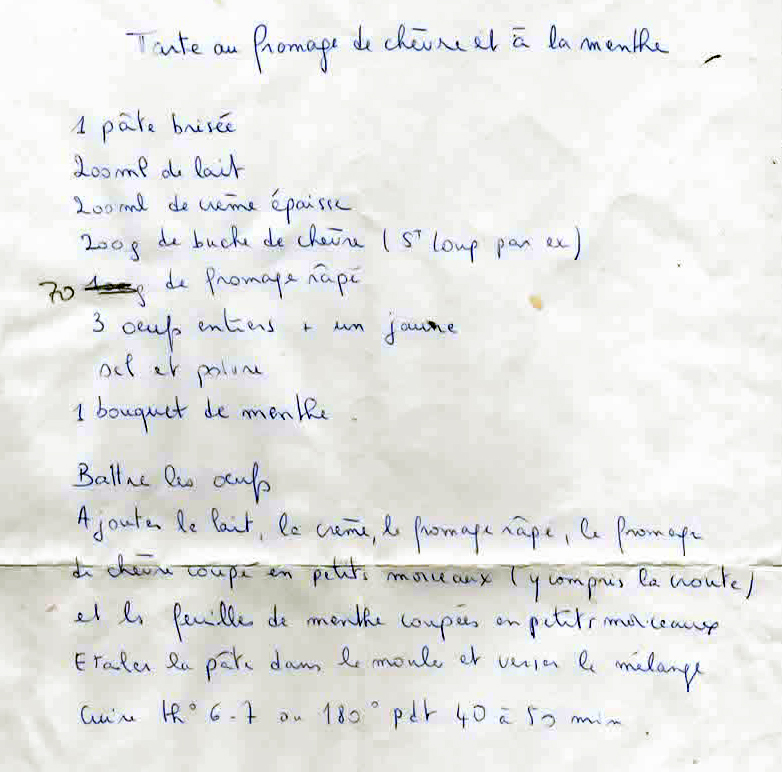 Tarte au fromage de chèvre et à la menthe
1 pâte brisée
200ml de lait
200ml de crème épaisse
200g de buche de chèvre (St Loup par ex)
70 g de fromage râpé
3 oeufs entiers + un jaune
sel et poivre
1 bouquet de menthe
Battre les oeufs
Ajouter le lait, la crème, le fromage râpé, le fromage
de chèvre coupé en petits morceaux (y compris la croute)
et les feuilles de menthe coupées en petits morceaux
Etaler la pâte dans le moule et verser le mélange
Cuire th° 6-7 ou 180° pdt 40 à 50 min